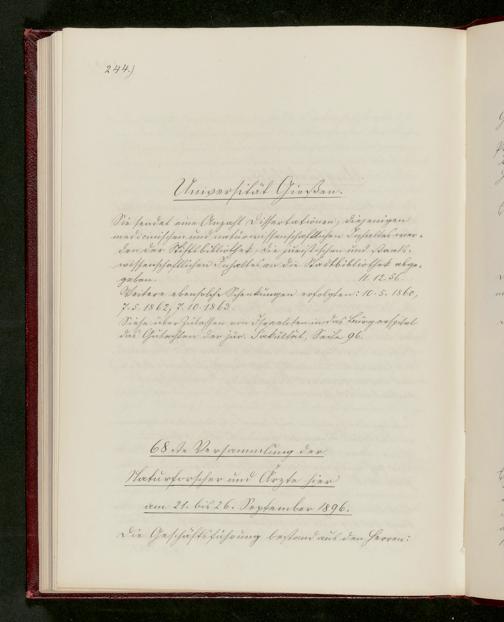 244.)
Universität Gießen.
Sie sendet eine Anzahl Dissertationen, diejenigen
medicinischen und naturwissenschaftlichen Inhaltes wer-
den der Stiftsbibliothek, die juristischen und staats-
wissenschaftlichen Inhaltes an die Stadtbibliothek abge-
geben. 11.12.56.
Weitere ebensolche Schenkungen erfolgten: 10.5.1860,
7.5.1862, 7.10.1863.
Siehe über Zulassen von Israeliten in das Bürgerspital
das Gutachten der jur. Fakultät, Seite 96.
68.ste Versammlung der
Naturforscher und Ärzte hier
am 21. bis 26. September 1896.
Die Geschäftsführung bestand aus den Herren: